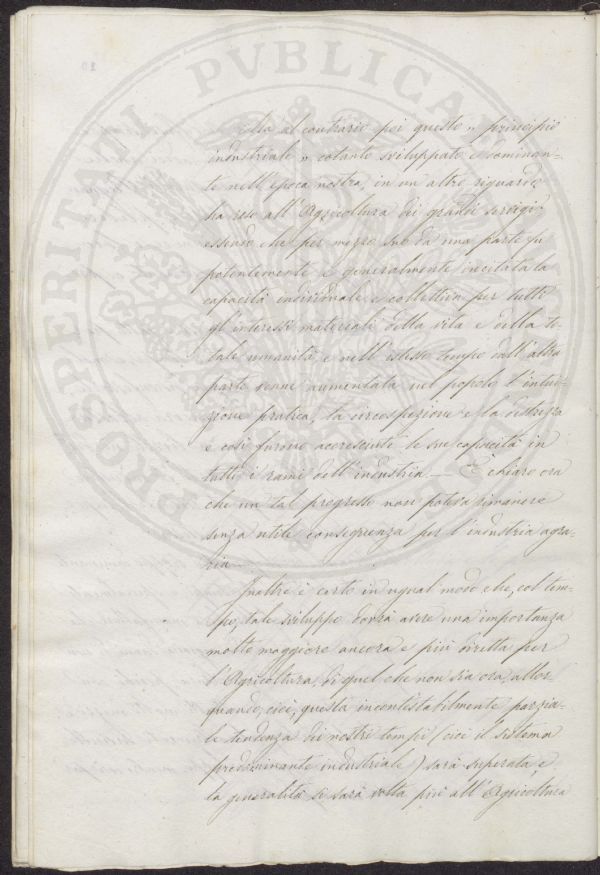 Ma al contrario poi questo „ principio
industriale „ cotanto sviluppato e dominan-
te nell'epoca nostra, in un altro riguardo
ha reso all'Agricoltura dei grandi servigi
essendo che per mezzo suo da una parte fu
potentemente e generalmente incitata la
capacità individuale e collettiva per tutti
gl'interessi materiali della vita e della to-
tale umanità, e nell'istesso tempo dall'altra
parte venne aumentata nel popolo l'intui-
zione pratica, la circospezione e la destrezza
e così furono accresciute le sue capacità in
tutti i rami dell'industria. — È chiaro ora
che un tal progresso non poteva rimanere
senza utile conseguenza per l'industria agra-
ria.
Inoltre è certo in ugual modo che, col tem-
po, tale sviluppo dovrà avere una importanza
molto maggiore ancora e più diretta per
l'Agricoltura, di quel che non sia ora, allor
quando, cioè, questa incontestabilmente parzia-
le tendenza dei nostri tempi (cioè il sistema
predominante industriale) sarà superata e,
la generalità si sarà volta più all'Agricoltura
PROSPERITATI PVBLICAE